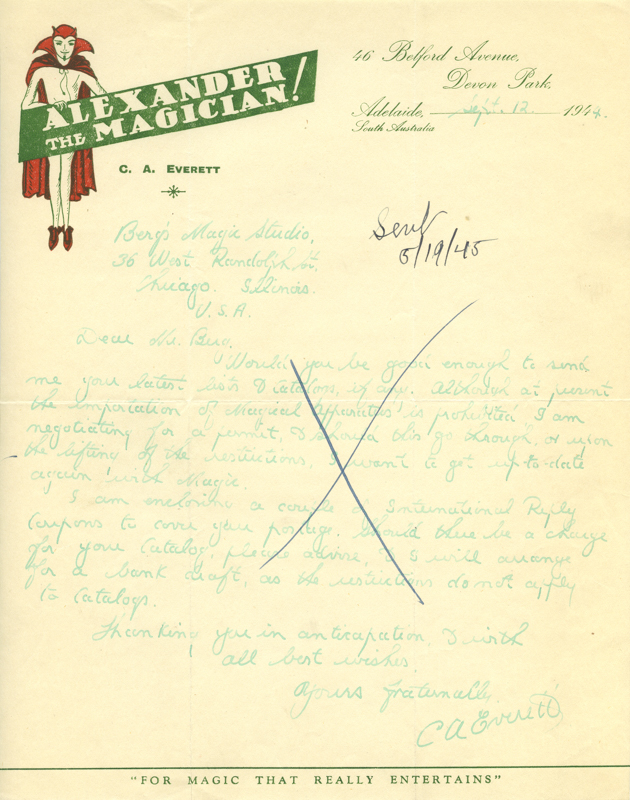 ALEXANDER
THE MAGICIAN!
C. A. EVERETT
46 Belford Avenue,
Devon Park,
Adelaide, Sept. 12 1944.
South Australia
Sent
5/19/45
Berg's Magic Studio,
36 West Randolph St.
Chicago. Illinois.
U.S.A.
Dear Mr. Berg.
Would you be good enough to send
me your latest lists & Catalogs, if any. Although at present
the importation of Magical Apparatus is prohibited I am
negotiating for a permit, & should this go through, or upon
the lifting of the restrictions, I want to get up-to-date
again with Magic.
I am enclosing a couple of International Reply
Coupons to cover your postage. Should there be a charge
for your Catalog, please advise, & I will arrange
for a bank draft, as the restrictions do not apply
to Catalogs.
Thanking you in anticapation, & with
all best wishes,
Yours fraternally
C A Everett
"FOR MAGIC THAT REALLY ENTERTAINS"